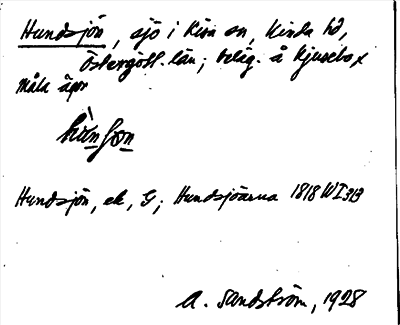 Hundsjön, sjö i Kisa sn, Kinda hd,
Östergötl. län; beläg. å Kjusebo x
måla ägor
Hundsjön, ek, G; Hundsjöarna 1818 WI
A. Sandström, 1928